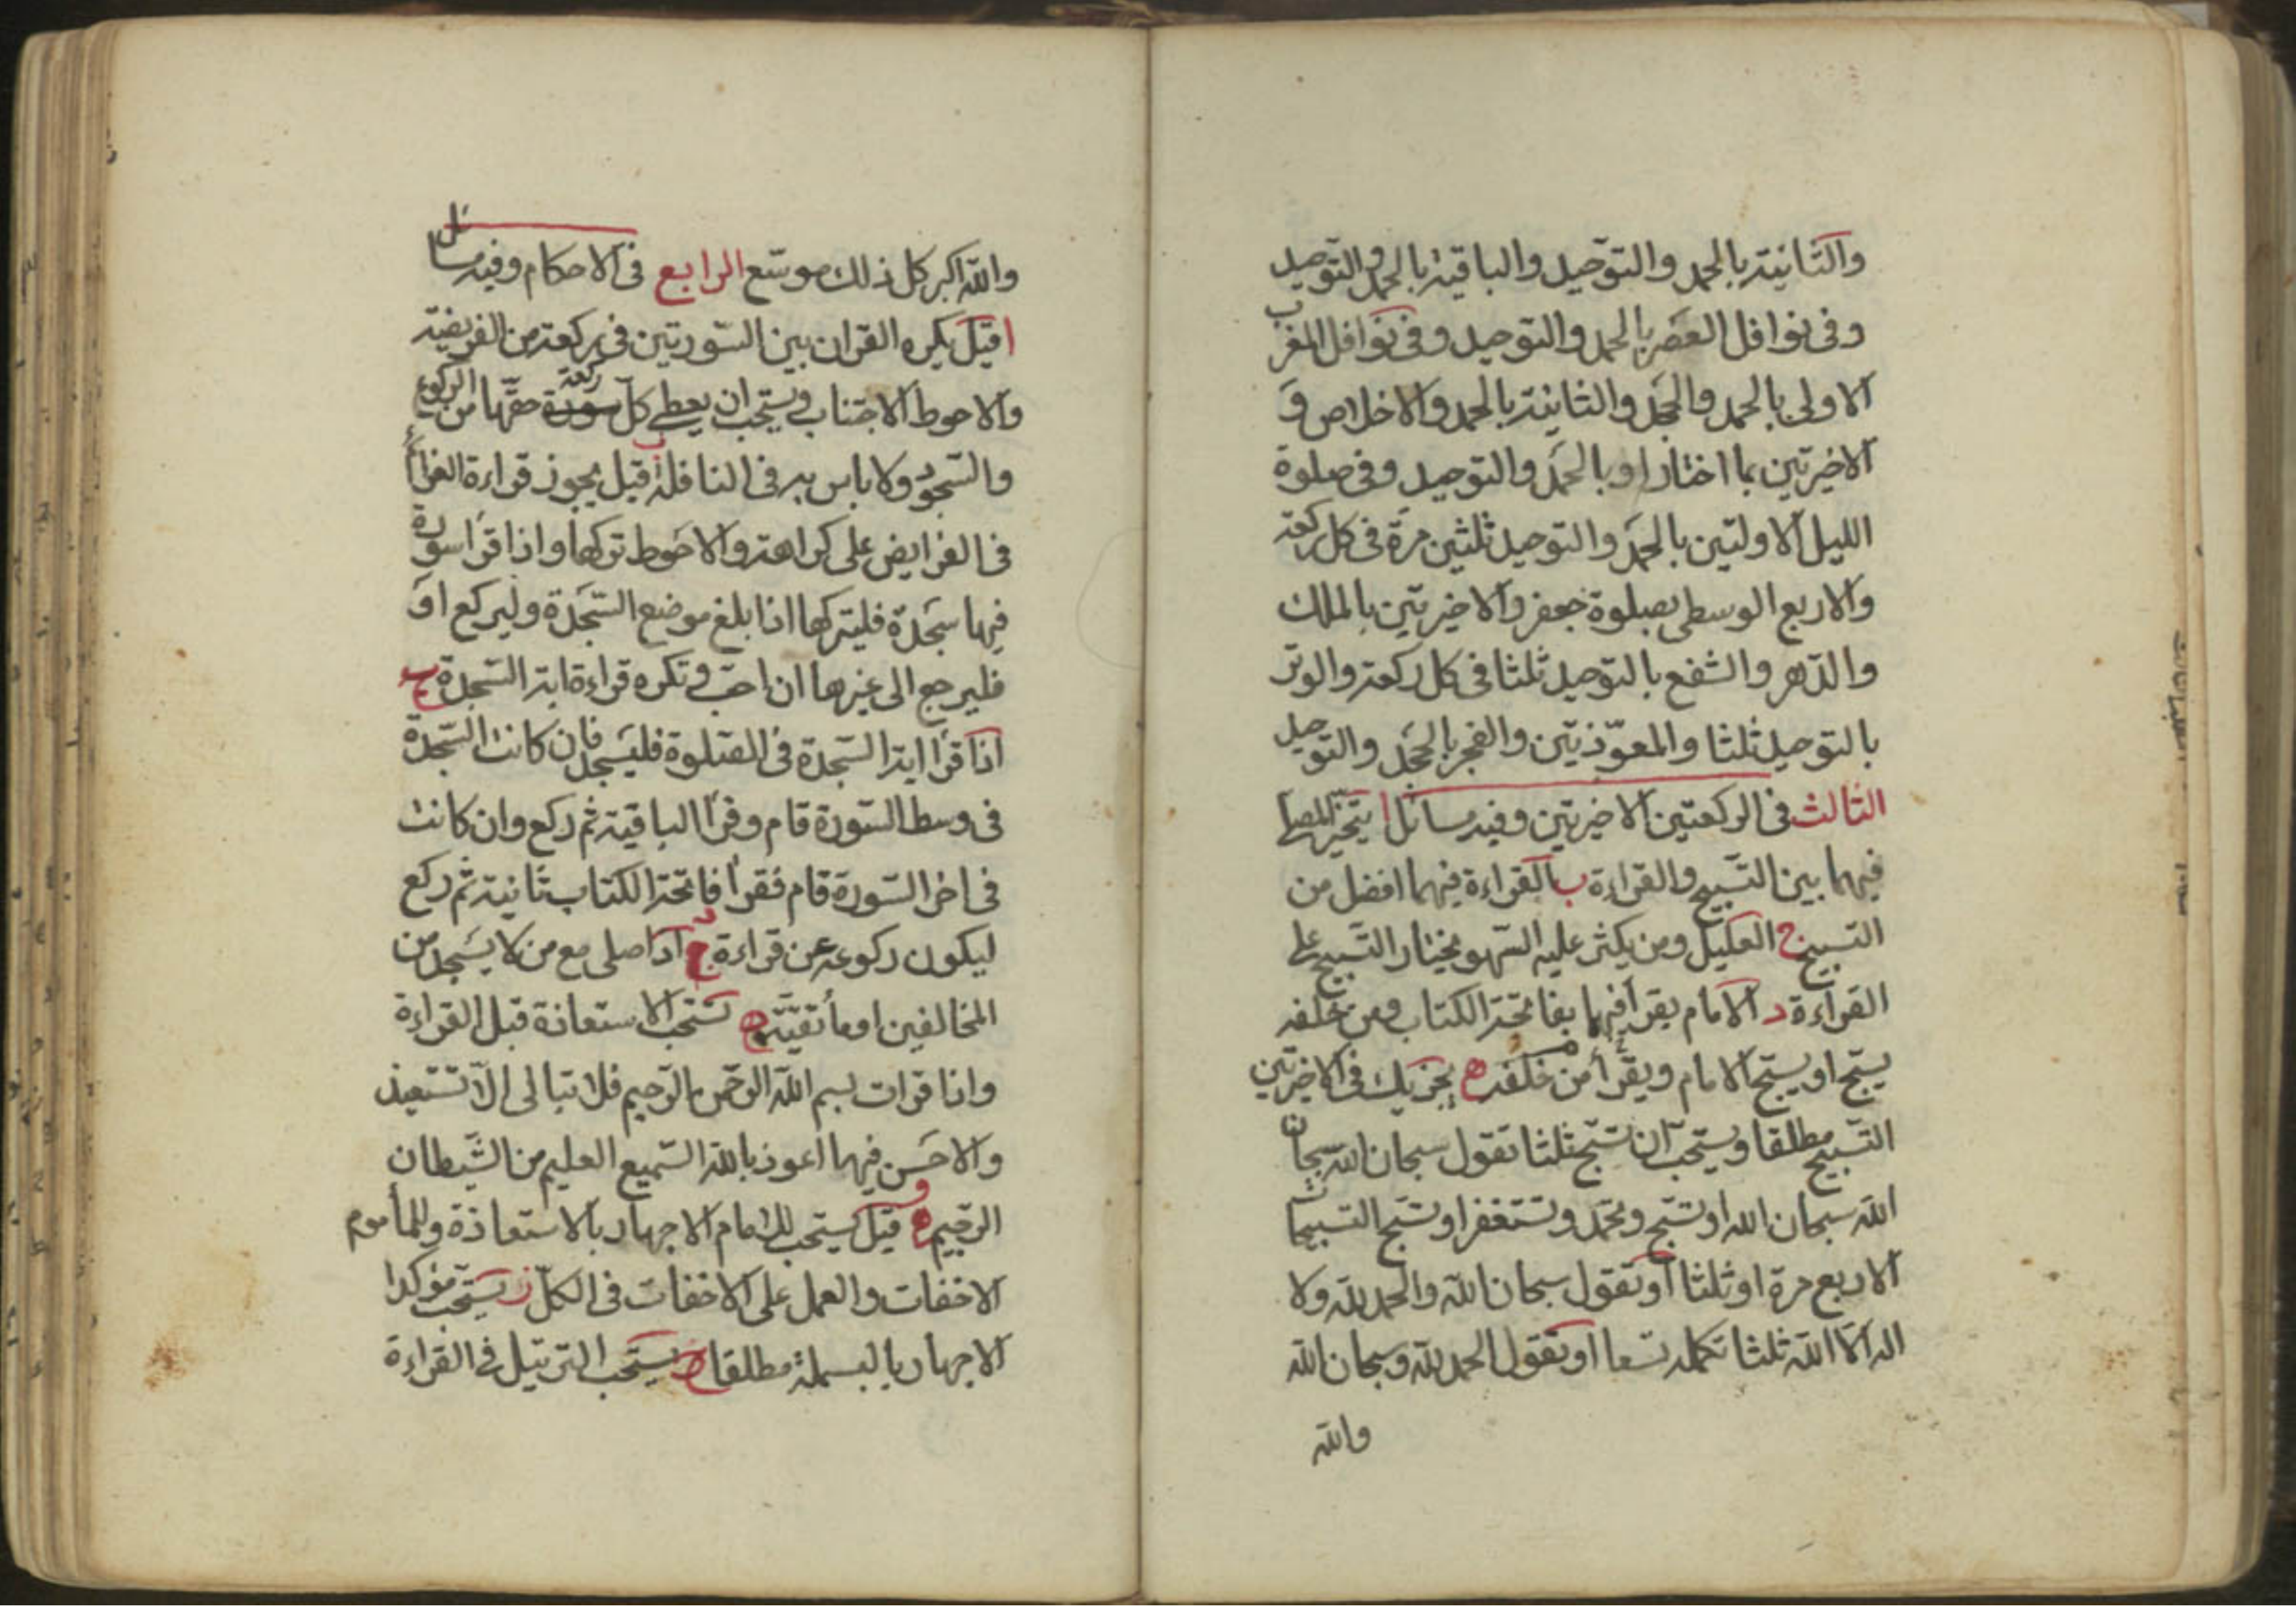 والثانية بالحمد والتوحيد والباقية بالحمد والتوحيد
وفى نوافل العصر بالحمد والتوحيد وفى نوافل المغرب
الاولى بالحمد والجحد والثانية بالحمد والاخلاص و
الاخيرتين بما اختار او بالحمد والتوحيد وفى صلوة
الليل الاولتين بالحمد والتوحيد ثلثين مرة فى كل ركعة
والاربع الوسطى بصلوة جعفر والاخيرتين بالملك
والدهر والشفع بالتوحيد ثلثا فى كل ركعة والوتر
بالتوحيد ثلثا والمعوّذتين والفجر بالجحد والتوحيد
الثالث فى الركعتين الاخيرتين وفيه مسائل ا يتخير المصلى
فيهما بين التسبيح والقراءة ب القراءة فيهما افضل من
التسبيح ج العليل ومن يكثر عليه السهو يختار التسبيح على
القراءة د الامام يقرأ فيهما بفاتحة الكتاب ومن خلفه
يسبّح او يسبّح الامام ويقرأ من خلفه ه يجزيك فى الاخيرتين
التسبيح مطلقا ويستحب ان تسبّح ثلثا تقول سبحان الله سبحان
الله سبحان الله او تسبّح وتحمد وتستغفر او تسبّح التسبيحات
الاربع مرة او ثلثا او تقول سبحان الله والحمد لله ولا
اله الا الله ثلثا تكمله تسعا او تقول الحمد لله وسبحان الله
والله
والله اكبر كل ذلك موسّع الرابع فى الاحكام وفيه مسائل
ا قيل يكره القران بين السّورتين فى ركعة من الفريضة
والاحوط الاجتناب ويستحب ان يعطى كلّ سورة ركعة حقّها من الركوع
والسّجود ولا باس به فى النافلة ب قيل يجوز قراءة العزائم
فى الفرايض على كراهة والاحوط تركها واذا قرأ سورة
فيها سَجدة فليتركها اذا بلغ موضع السّجدَة وليركع او
فليرجع الى غيرها ان احبّ وتكره قراءة اية السّجدة ج
اذا قرأ اية السّجدة فى الصّلوة فليسَجد فان كانت السّجدة
فى وسط السّورة قام وقرأ الباقية ثم ركع وان كانت
فى اخر السّورة قام فقرأ فاتحة الكتاب ثانية ثم ركع
ليكون ركوعه عن قراءة د اذا صلى مع من لا يسَجد من
المخالفين اومأ تقيّة ه تستحبّ الاستعاذة قبل القراءة
واذا قرات بسم الله الرحمن الرّحيم فلا تبالى الّا تستعيذ
والاحسَن فيهما اعوذ بالله السّميع العليم من الشَيطان
الرجيم و قيل يستحب للامام الاجهار بالاستعاذة وللمأموم
الاخفات والعمل على الاخفات فى الكلّ ز يستحب مؤكدا
الاجهار بالبسملة مطلقا ح يستحب الترتيل فى القراءة